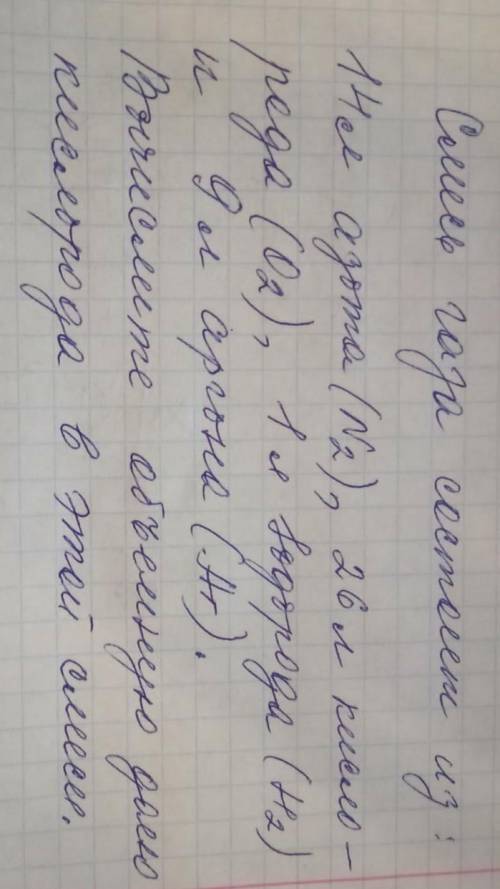 Смесь газа состоит из:
14 л азота (N2), 26 л кисло-
рода (O2), 1 л водорода (H2)
и 9 л аргона (Ar).
Вычислите объемную долю
кислорода в этой смеси.